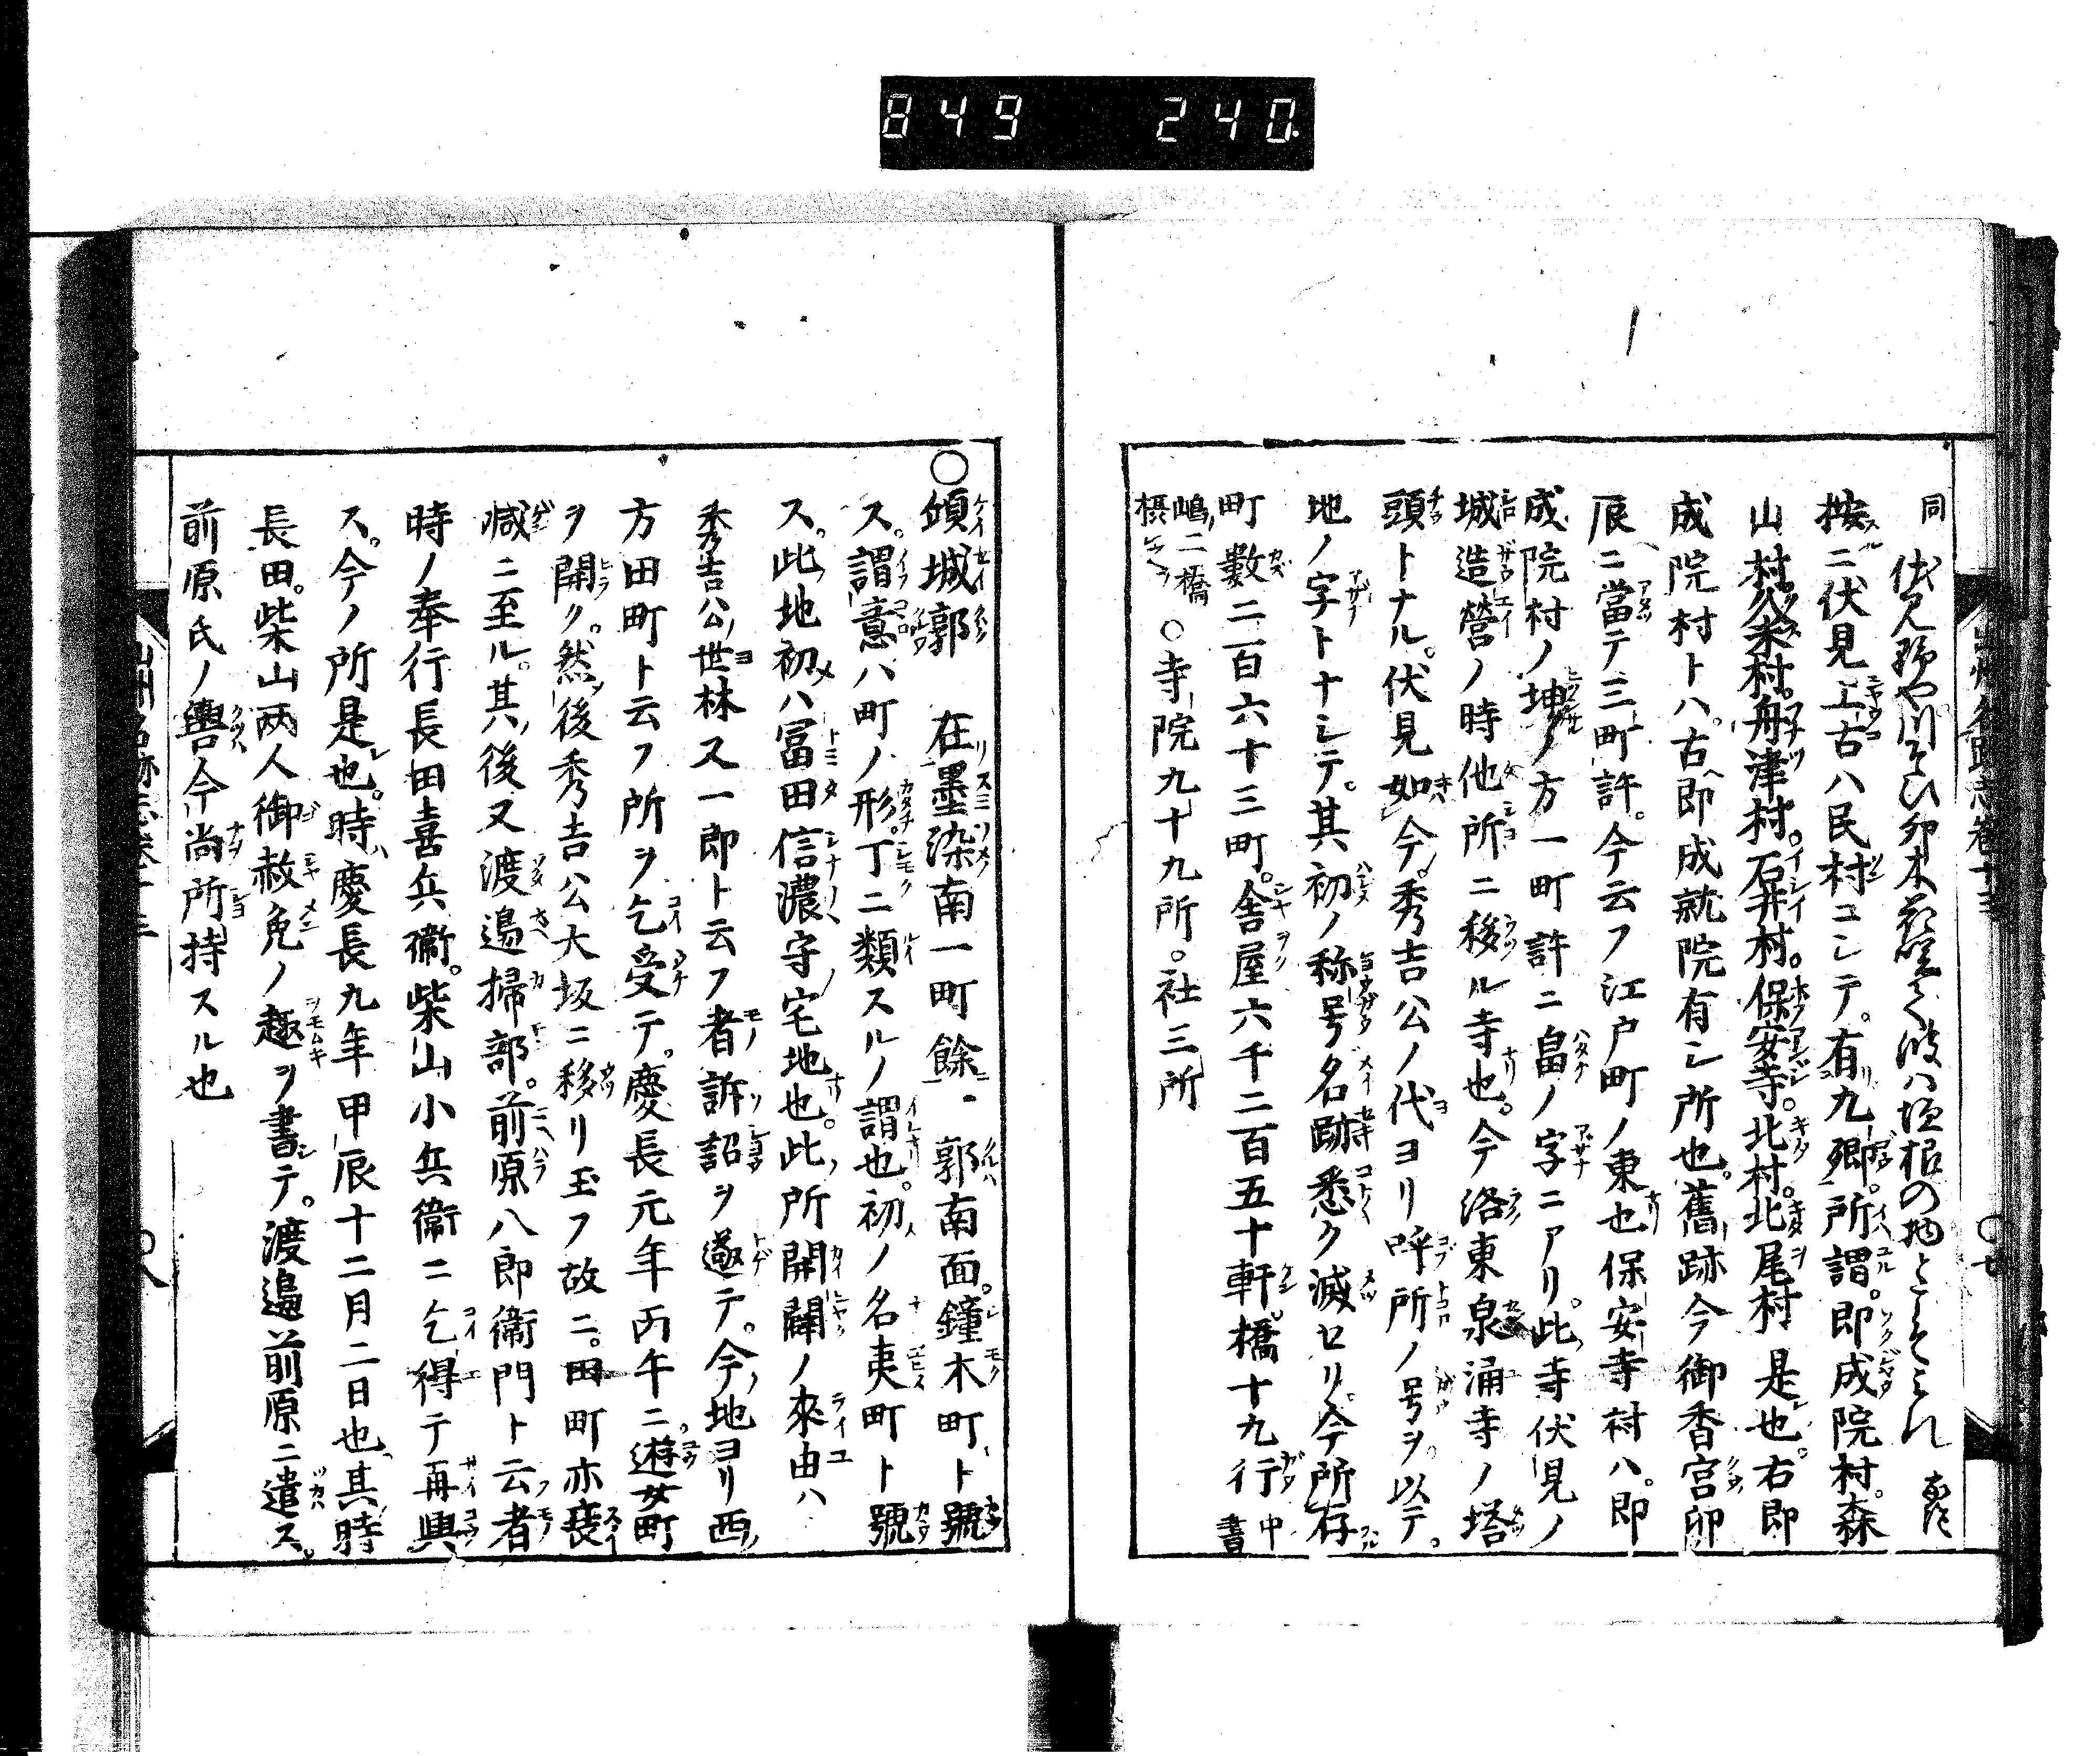 849 240.
同 伏見野や川そひ卯木花咲て波は垣根の物とこそみれ
按ニ伏見上古ハ民村ニシテ。有九郷。所謂。即成院村。森
山村。久米村。舟津村。石井村。保安寺。北村。北尾村是也。右即
成院村トハ。古即成就院有シ所也。舊跡今御香宮卯
辰ニ當テ三町許。今云フ江戸町ノ東也保安寺村ハ。即
成院村ノ坤ノ方一町許ニ畠ノ字ニアリ。此寺伏見ノ
城造營ノ時他所ニ移ル寺也。今洛東泉涌寺ノ塔
頭トナル。伏見如今。秀吉公ノ代ヨリ呼所ノ号ヲ以テ。
地ノ字トナシテ。其初ノ称号名跡悉ク滅セリ。今所存
町數二百六十三町。舎屋六千二百五十軒。橋十九行中書
嶋二橋
摂 〇寺院九十九所。社三所
〇傾城郭 在墨染南一町餘。郭南面。鐘木町ト號
ス。謂意ハ町ノ形。丁ニ類スルノ謂也。初ノ名夷町ト號
ス。此地初ハ冨田信濃守宅地也。此所開闢ノ來由ハ
秀吉公ノ世林又一郎ト云フ者訴詔ヲ遂テ。今ノ地ヨリ西ノ
方田町ト云フ所ヲ乞受テ。慶長元年丙午ニ。遊女町
ヲ開ク。然後秀吉公大坂ニ移リ玉フ故ニ。田町亦衰
減ニ至ル。其後又渡邉掃部。前原八郎衞門ト云者
時ノ奉行長田喜兵衞。柴山小兵衞ニ乞得テ再興
ス。今ノ所是也。時慶長九年甲辰十二月二日也、其時
長田。柴山両人御赦免ノ趣ヲ書テ。渡邉前原ニ遣ス。
前原氏ノ輿今尚所持スル也